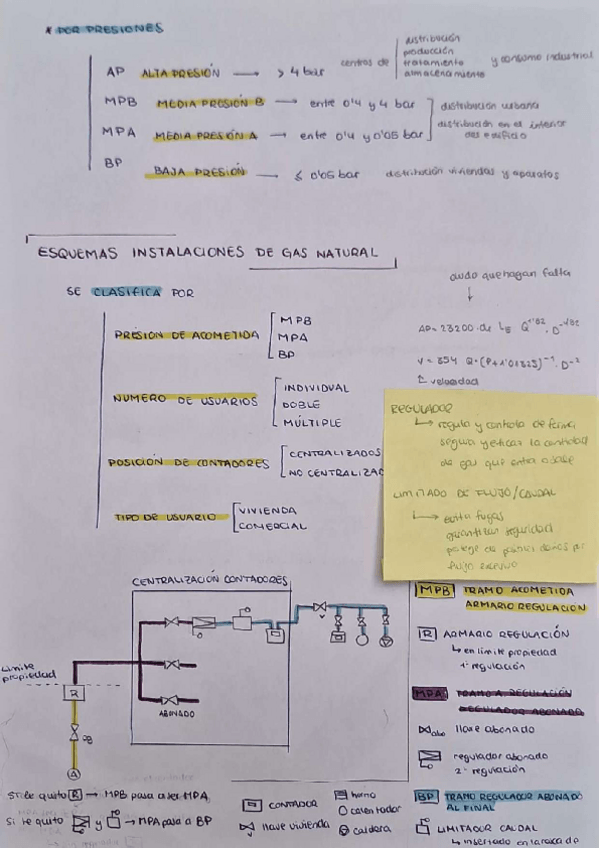 * POR PRESIONES
AP ALTA PRESIÓN → > 4 bar centros de distribución producción tratamiento almacenamiento y consumo industrial
MPB MEDIA PRESIÓN B → entre 0'4 y 4 bar distribución urbana
MPA MEDIA PRESIÓN A → entre 0'4 y 0'05 bar distribución en el interior del edificio
BP BAJA PRESIÓN → ≤ 0'05 bar distribución viviendas y aparatos
ESQUEMAS INSTALACIONES DE GAS NATURAL
SE CLASIFICA POR
cuando que hagan falta
PRESIÓN DE ACOMETIDA
MPB
MPA
BP
NUMERO DE USUARIOS
INDIVIDUAL
DOBLE
MÚLTIPLE
POSICIÓN DE CONTADORES
CENTRALIZADOS
NO CENTRALIZAD
TIPO DE USUARIO
VIVIENDA
COMERCIAL
velocidad
REGULADOR
↳ regula y controla de forma
segura y eficaz la cantidad
de gas que entra o sale
LIMITADO DE FLUJO/CAUDAL
↳ evita fugas
garantizan seguridad
protege de posibles daños por
flujo excesivo
CENTRALIZACIÓN CONTADORES
Limite
propiedad
R
ABONADO
A
MPB TRAMO ACOMETIDA
ARMARIO REGULACIÓN
R ARMARIO REGULACIÓN
↳ en límite propiedad
1ª regulación
MPA TRAMO A REGULACIÓN
REGULADOR ABONADO
abo llave abonado
regulador abonado
2ª regulación
BP TRAMO REGULADOR ABONADO
AL FINAL
LIMITADOR CAUDAL
↳ insertado en la rosca de
Si le quito R → MPB pasa a ser MPA
Si le quito y → MPA pasa a BP
CONTADOR
llave vivienda
horno
calentador
caldera